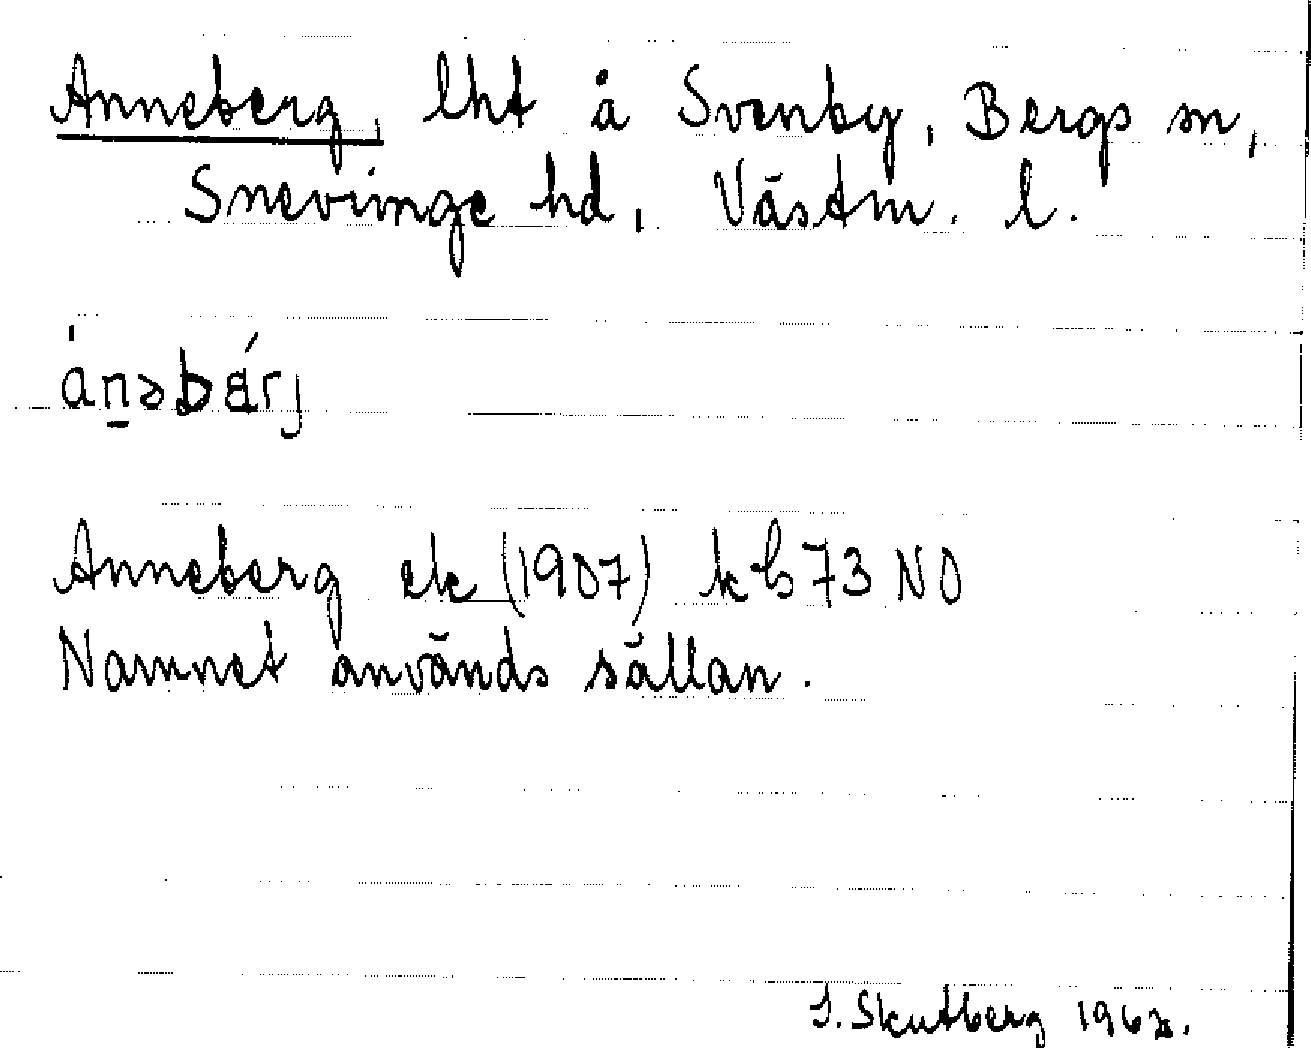 Anneberg, lht å Svenby, Bergs sn,
Snevringe hd, Västm. l.
ánəbǽrj
Anneberg ek (1907) kb 73 NO
Namnet används sällan.
S. Skutberg 1962.